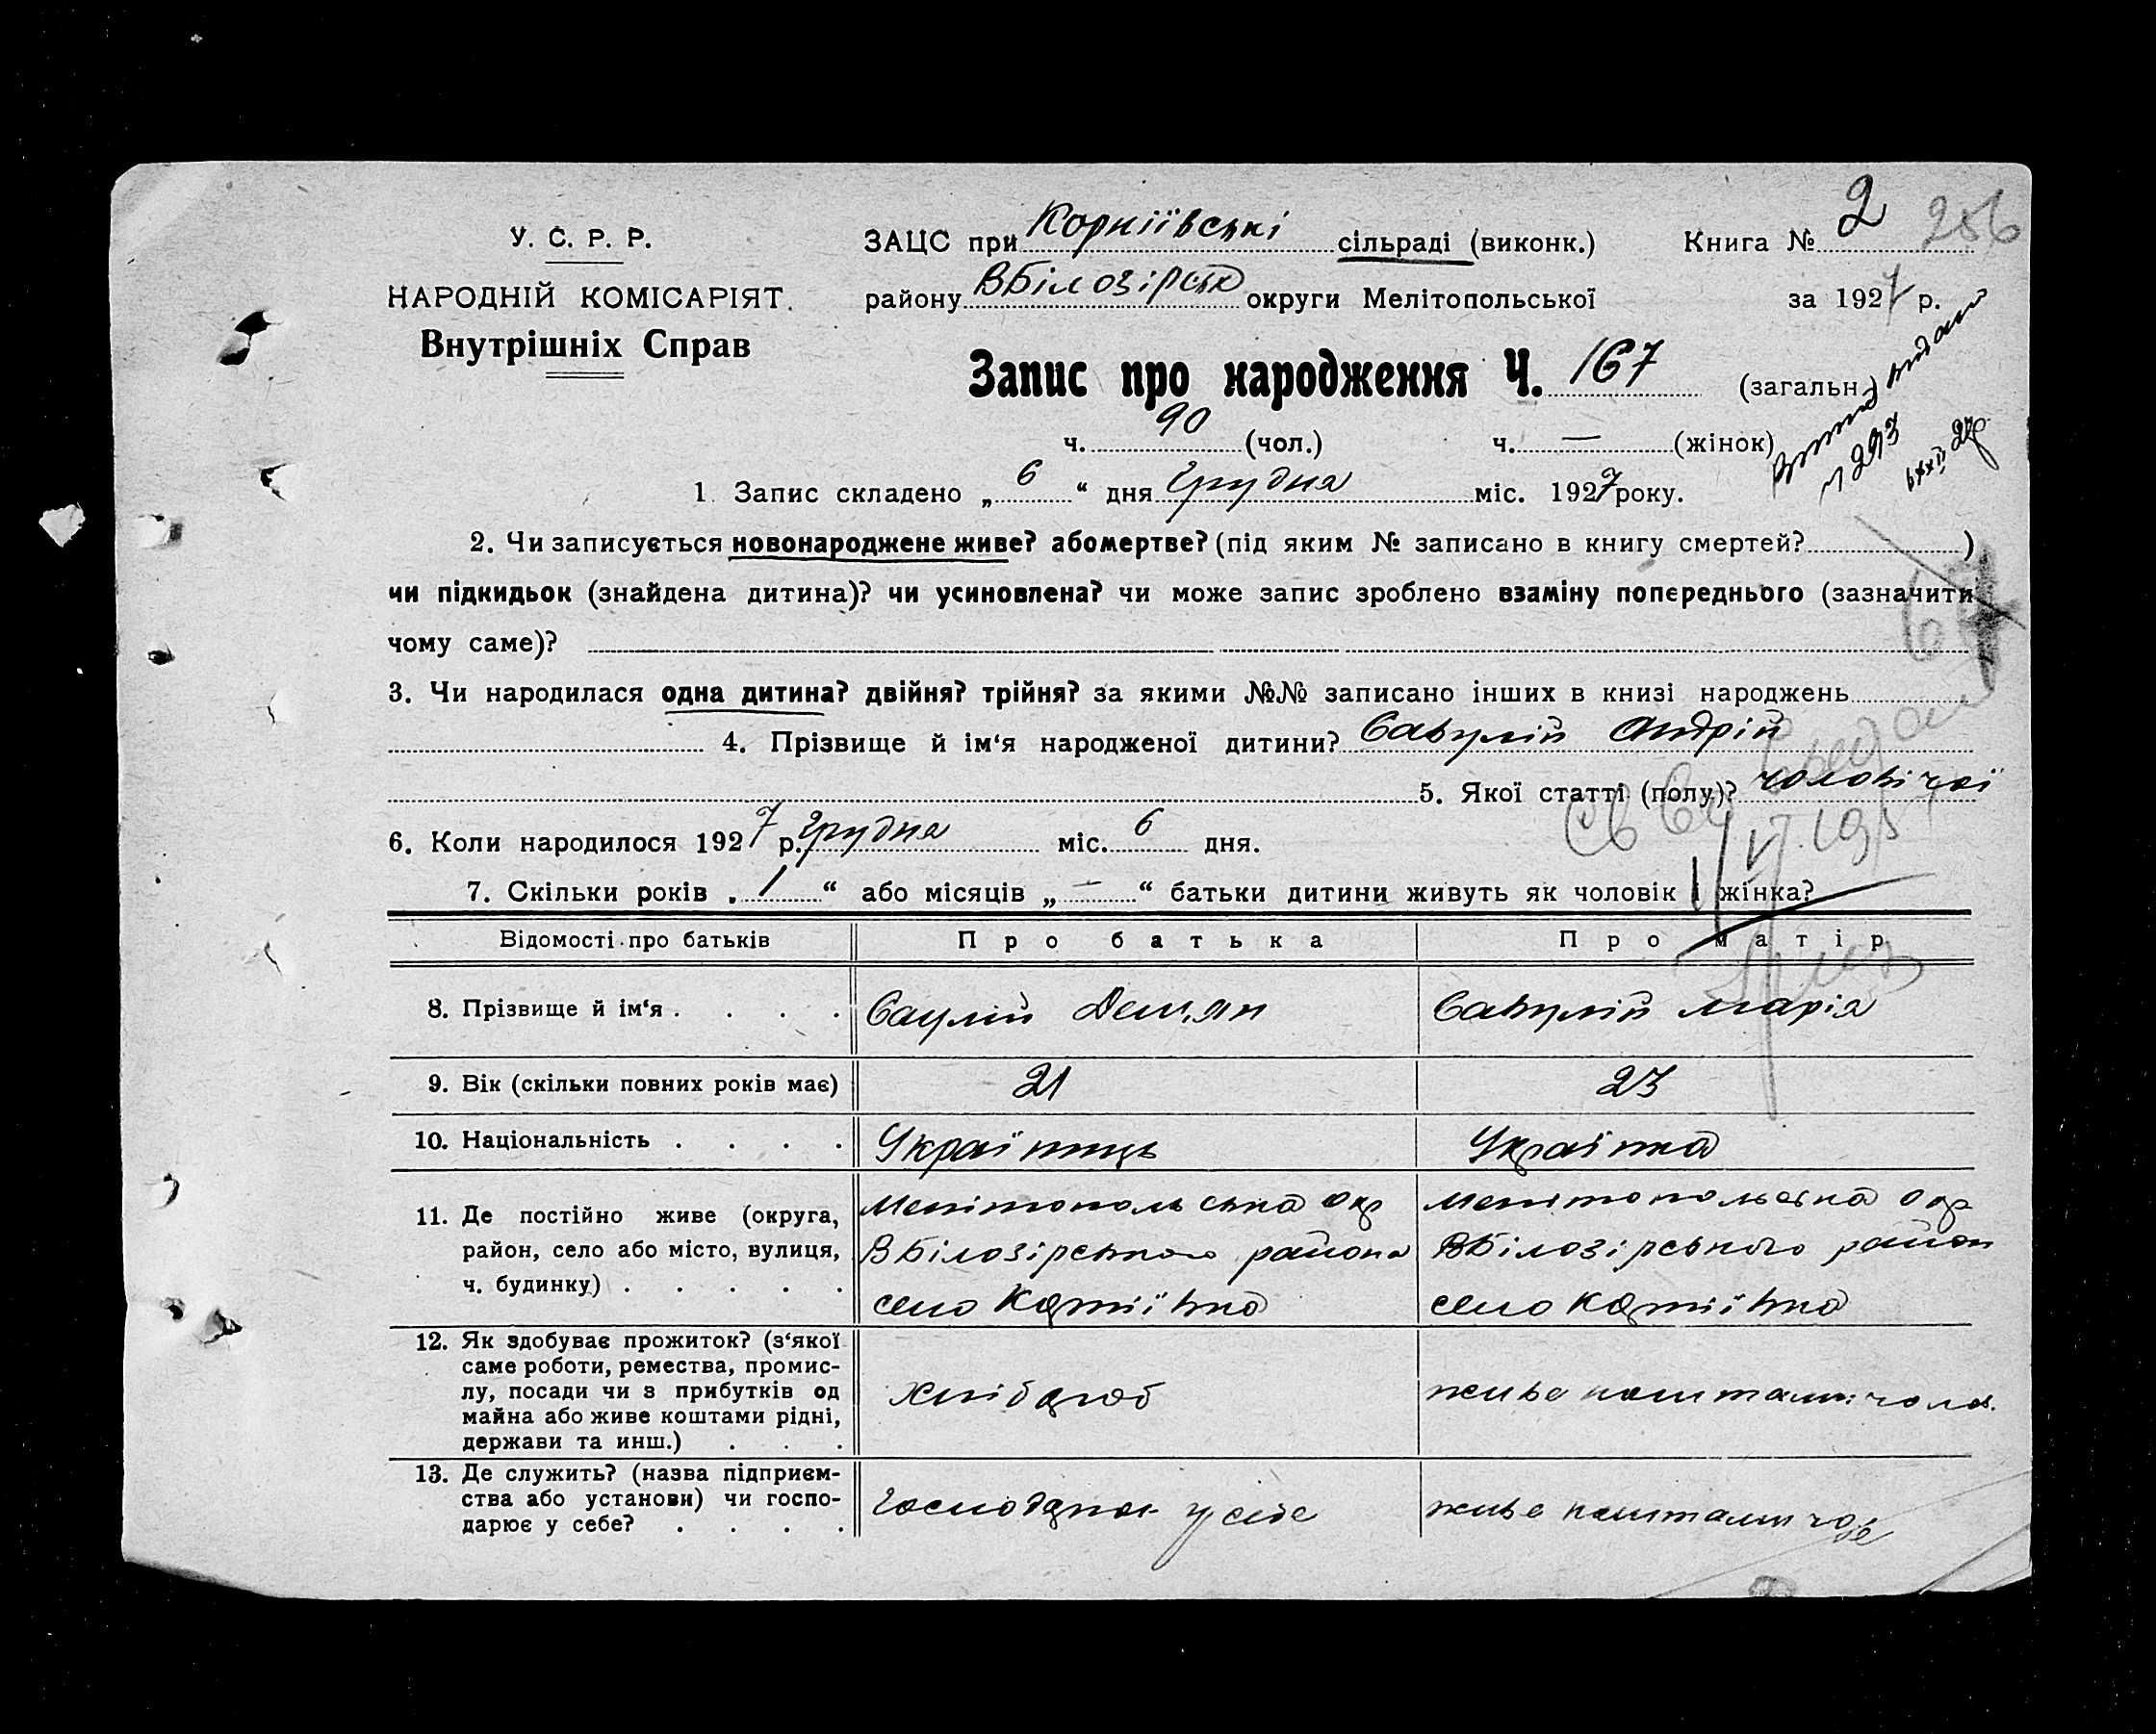 У. С. Р. Р.
НАРОДНІЙ КОМІСАРІЯТ.
Внутрішніх Справ
ЗАЦС при Корніївські сільраді (виконк.) Книга № 2 256
району ВБілозірськ округи Мелітопольської за 1927 р.
Запис про народження Ч. 167 (загальн.)
ч. 90 (чол.) ч. — (жінок)
293
1. Запис складено „ 6 “ дня Грудня міс. 1927 року.
2. Чи записується новонароджене живе? або мертве? (під яким № записано в книгу смертей? )
чи підкидьок (знайдена дитина)? чи усиновлена? чи може запис зроблено взаміну попереднього (зазначити
чому саме)?
3. Чи народилася одна дитина? двійня? трійня? за якими №№ записано інших в книзі народжень
4. Прізвище й ім‘я народженої дитини? Савулій Андрій
5. Якої статті (полу)? чоловічої
6. Коли народилося 1927 р. Грудня міс. 6 дня.
7. Скільки років „ 1 “ або місяців „ — “ батьки дитини живуть як чоловік і жінка?
Відомості про батьків Про батька Про матір
8. Прізвище й ім‘я . . . . Саулій Демян Савулій Марія
9. Вік (скільки повних років має) 21 23
10. Національність . . . . Українець Українка
11. Де постійно живе (округа, Мелітопольська окр Мелітопольська окр
район, село або місто, вулиця, ВБілозірського района ВБілозірського район
ч. будинку) . . . . . село Корніївка село Корніївка
12. Як здобуває прожиток? (з‘якої
саме роботи, ремества, промис-
лу, посади чи з прибутків од хлібороб живе коштами чолов.
майна або живе коштами рідні,
держави та инш.) . . .
13. Де служить? (назва підприєм-
ства або установи) чи госпо- Господарює у себе живе коштами
дарює у себе? . . . .